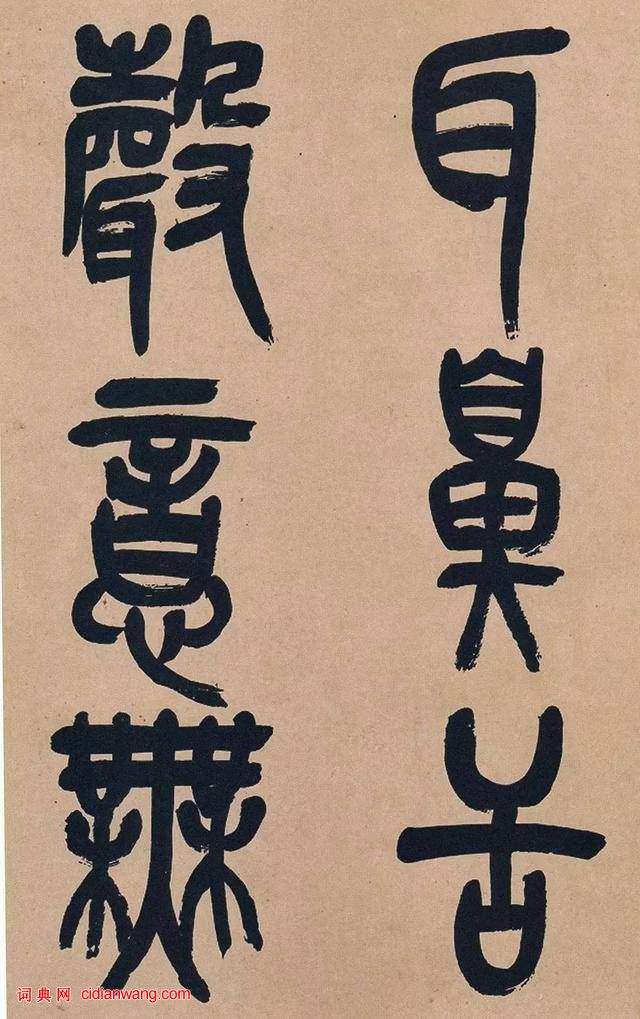 耳鼻舌
聲意無
词典网 cidianwang.com